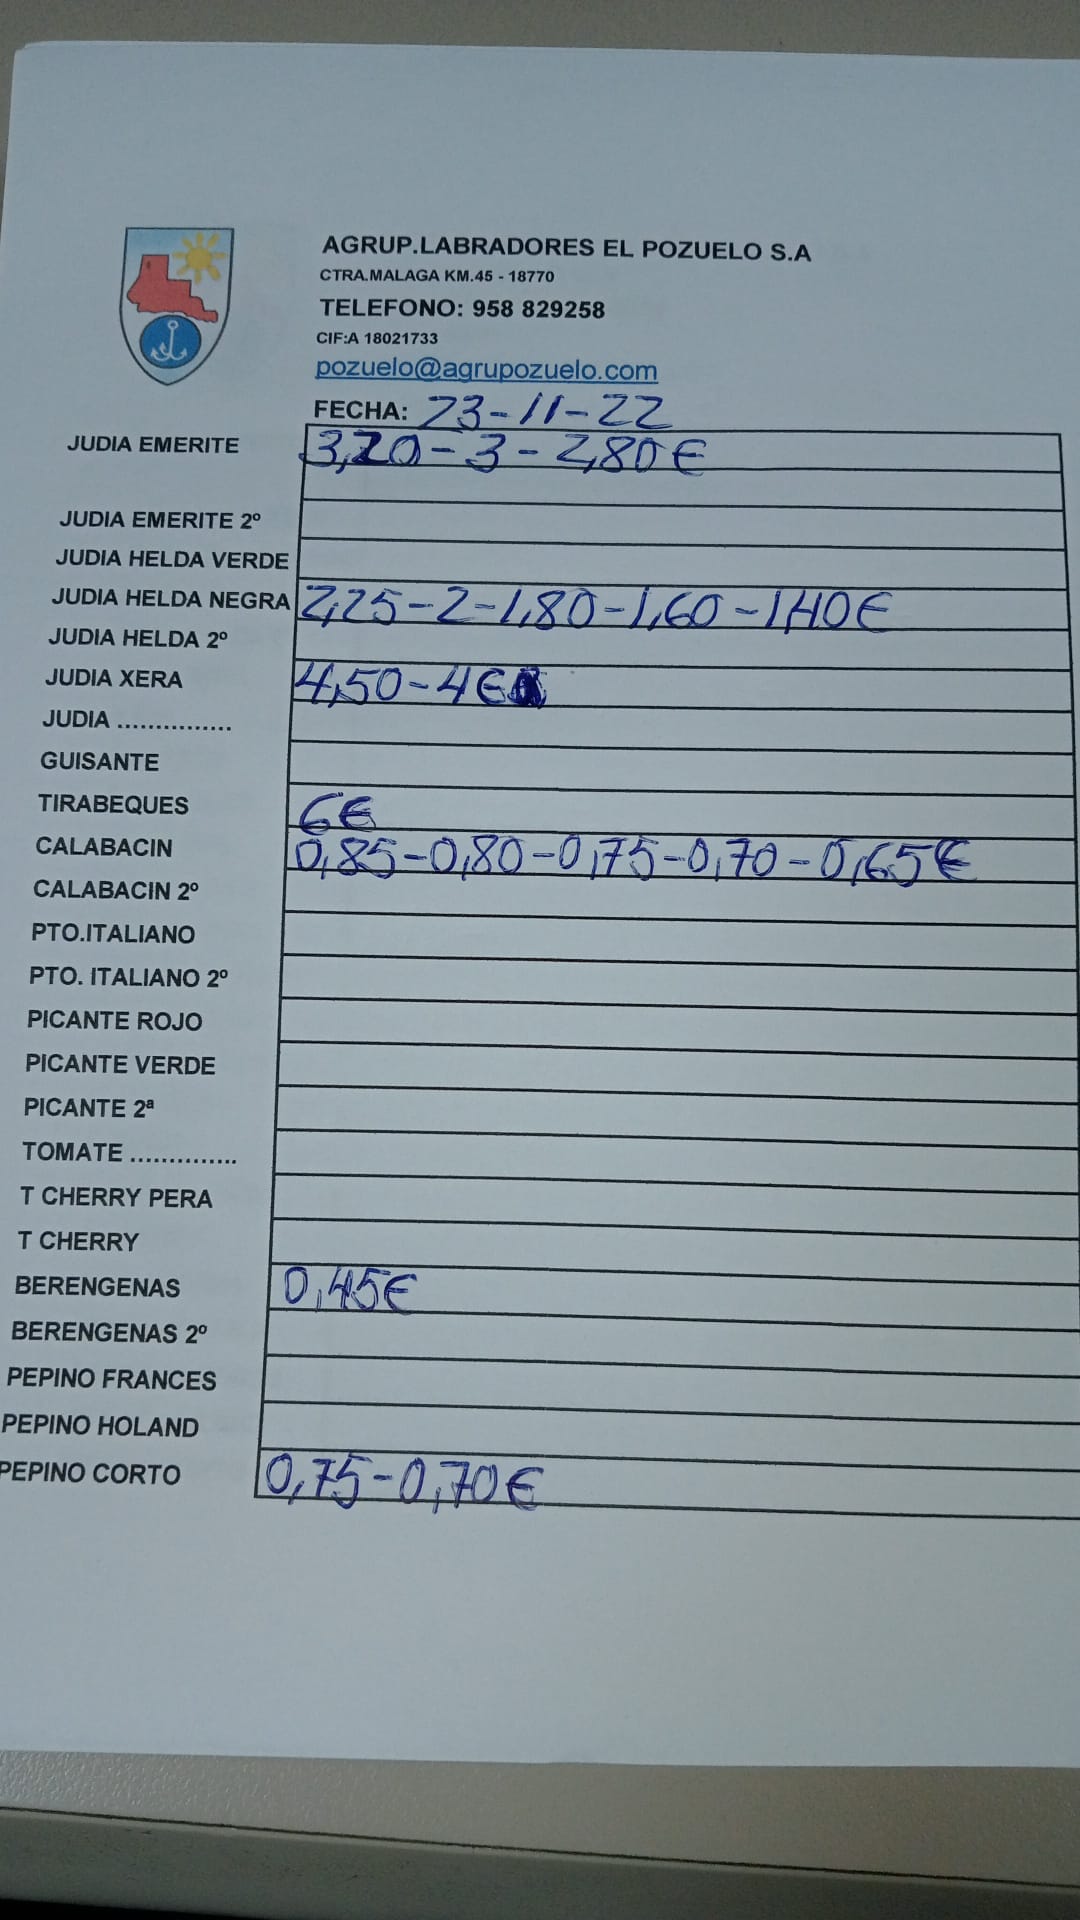 AGRUP.LABRADORES EL POZUELO S.A
CTRA.MALAGA KM.45 - 18770
TELEFONO: 958 829258
CIF:A 18021733
pozuelo@agrupozuelo.com
FECHA: 23-11-22
JUDIA EMERITE 3,20-3-2,80€
JUDIA EMERITE 2º
JUDIA HELDA VERDE
JUDIA HELDA NEGRA 2,25-2-1,80-1,60-1,40€
JUDIA HELDA 2º
JUDIA XERA 4,50-4€
JUDIA ...............
GUISANTE
TIRABEQUES 6€
CALABACIN 0,85-0,80-0,75-0,70-0,65€
CALABACIN 2º
PTO.ITALIANO
PTO. ITALIANO 2º
PICANTE ROJO
PICANTE VERDE
PICANTE 2ª
TOMATE ..............
T CHERRY PERA
T CHERRY
BERENGENAS 0,45€
BERENGENAS 2º
PEPINO FRANCES
PEPINO HOLAND
PEPINO CORTO 0,75-0,70€